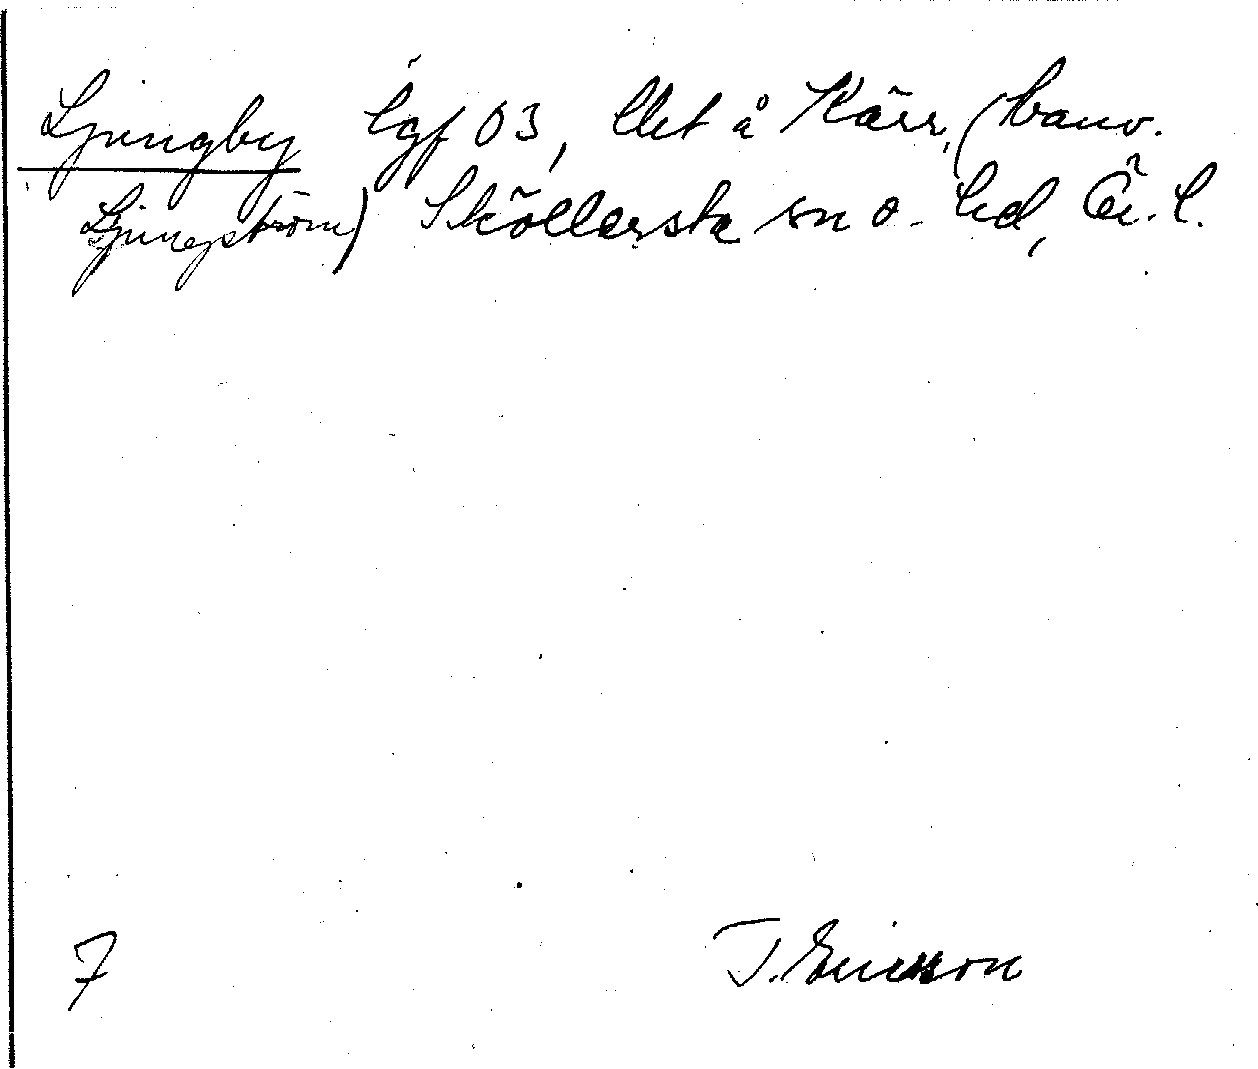 Ljungby lgf 03, Ust å Kärr, (banv.
Ljungström) Sköllersta sn o. hd, Ör. l.
7 T. Ericsson